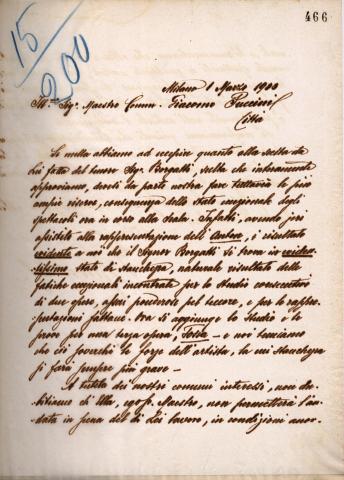 466
15/200
Milano 1 Marzo 1900
Ill. Sig. Maestro Comm. Giacomo Puccini
Città
Se nulla abbiamo ad eccepire quanto alla scelta da
Lei fatta del tenore Sig. Borgatti, scelta che interamente
approviamo, devesi da parte nostra fare tuttavia le più
ampie riserve, conseguenza dello stato eccezionale degli
spettacoli ora in corso alla Scala. Infatti, avendo jeri
assistito alla rappresentazione dell'Anton, è risultato
evidente a noi che il Signor Borgatti si trova in
stato di stanchezza, naturale risultato delle
fatiche eccezionali incontrate per lo studio consecutivo
di due opere, assai ponderose pel tenore, e per le rappre-
sentazioni fattene. Ora si aggiunge lo studio e le
prove per una terza opera, Tosca — e noi temiamo
che ciò soverchi le forze dell'artista, la cui stanchezza
si farà sempre più grave —
A tutela dei nostri comuni interessi, non du-
bitiamo che Ella, egr. Maestro, non permetterà l'an-
data in scena del di Lei lavoro, in condizioni anor-